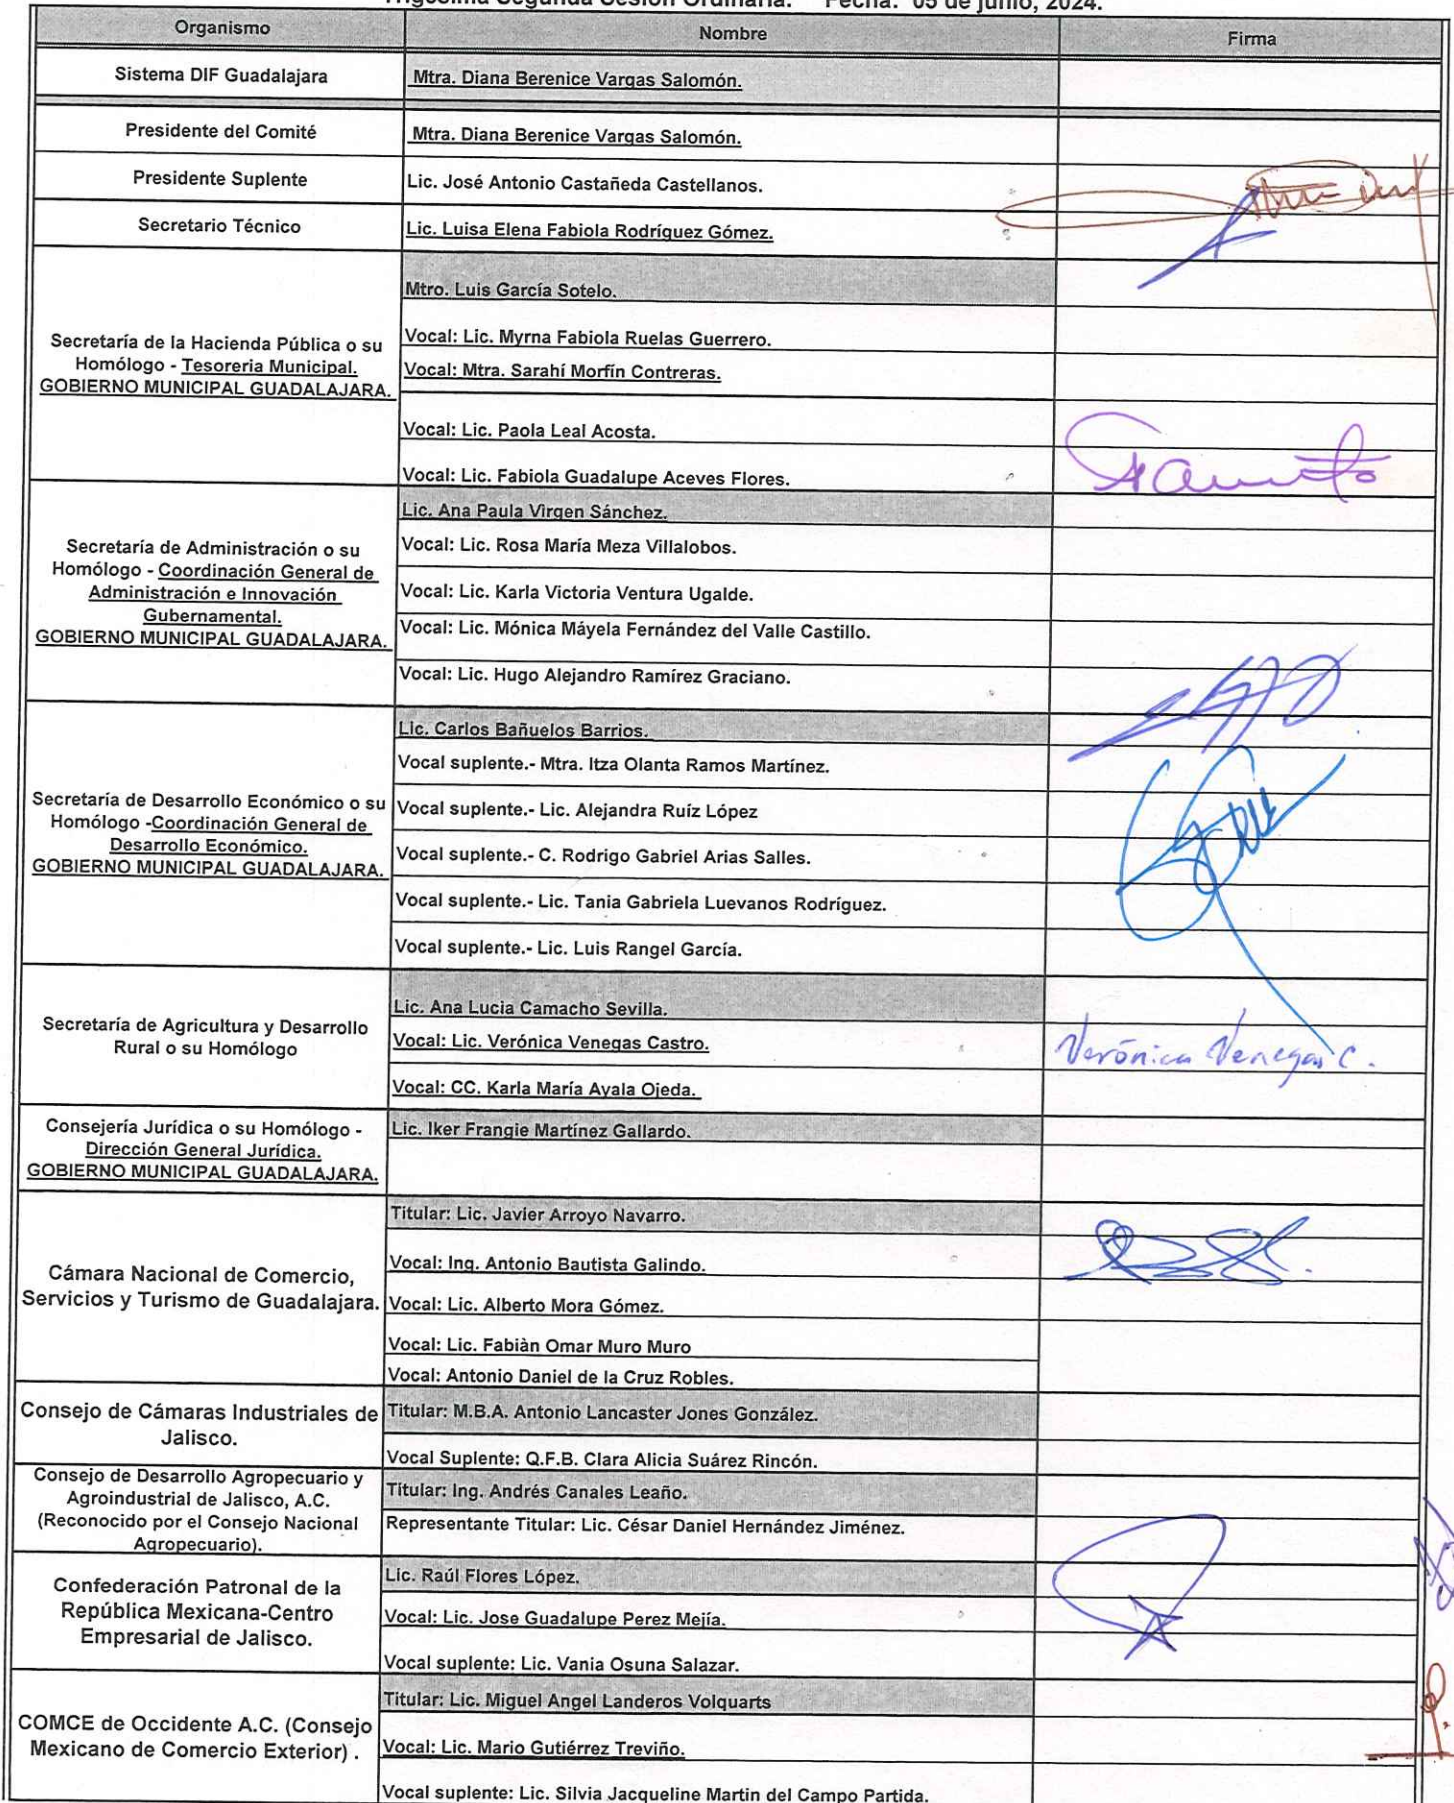 Trigésima Segunda Sesión Ordinaria. Fecha: 05 de junio, 2024.
Organismo Nombre Firma
Sistema DIF Guadalajara Mtra. Diana Berenice Vargas Salomón.
Presidente del Comité Mtra. Diana Berenice Vargas Salomón.
Presidente Suplente Lic. José Antonio Castañeda Castellanos.
Secretario Técnico Lic. Luisa Elena Fabiola Rodríguez Gómez.
Secretaría de la Hacienda Pública o su
Homólogo - Tesoreria Municipal.
GOBIERNO MUNICIPAL GUADALAJARA.
Mtro. Luis García Sotelo.
Vocal: Lic. Myrna Fabiola Ruelas Guerrero.
Vocal: Mtra. Sarahí Morfín Contreras.
Vocal: Lic. Paola Leal Acosta.
Vocal: Lic. Fabiola Guadalupe Aceves Flores.
Secretaría de Administración o su
Homólogo - Coordinación General de
Administración e Innovación
Gubernamental.
GOBIERNO MUNICIPAL GUADALAJARA.
Lic. Ana Paula Virgen Sánchez.
Vocal: Lic. Rosa María Meza Villalobos.
Vocal: Lic. Karla Victoria Ventura Ugalde.
Vocal: Lic. Mónica Máyela Fernández del Valle Castillo.
Vocal: Lic. Hugo Alejandro Ramírez Graciano.
Secretaría de Desarrollo Económico o su
Homólogo -Coordinación General de
Desarrollo Económico.
GOBIERNO MUNICIPAL GUADALAJARA.
Lic. Carlos Bañuelos Barrios.
Vocal suplente.- Mtra. Itza Olanta Ramos Martínez.
Vocal suplente.- Lic. Alejandra Ruíz López
Vocal suplente.- C. Rodrigo Gabriel Arias Salles.
Vocal suplente.- Lic. Tania Gabriela Luevanos Rodríguez.
Vocal suplente.- Lic. Luis Rangel García.
Secretaría de Agricultura y Desarrollo
Rural o su Homólogo
Lic. Ana Lucia Camacho Sevilla.
Vocal: Lic. Verónica Venegas Castro. Verónica Venegas C.
Vocal: CC. Karla María Ayala Ojeda.
Consejería Jurídica o su Homólogo -
Dirección General Jurídica.
GOBIERNO MUNICIPAL GUADALAJARA.
Lic. Iker Frangie Martínez Gallardo.
Cámara Nacional de Comercio,
Servicios y Turismo de Guadalajara.
Titular: Lic. Javier Arroyo Navarro.
Vocal: Ing. Antonio Bautista Galindo.
Vocal: Lic. Alberto Mora Gómez.
Vocal: Lic. Fabiàn Omar Muro Muro
Vocal: Antonio Daniel de la Cruz Robles.
Consejo de Cámaras Industriales de
Jalisco.
Titular: M.B.A. Antonio Lancaster Jones González.
Vocal Suplente: Q.F.B. Clara Alicia Suárez Rincón.
Consejo de Desarrollo Agropecuario y
Agroindustrial de Jalisco, A.C.
(Reconocido por el Consejo Nacional
Agropecuario).
Titular: Ing. Andrés Canales Leaño.
Representante Titular: Lic. César Daniel Hernández Jiménez.
Confederación Patronal de la
República Mexicana-Centro
Empresarial de Jalisco.
Lic. Raúl Flores López.
Vocal: Lic. Jose Guadalupe Perez Mejía.
Vocal suplente: Lic. Vania Osuna Salazar.
COMCE de Occidente A.C. (Consejo
Mexicano de Comercio Exterior) .
Titular: Lic. Miguel Angel Landeros Volquarts
Vocal: Lic. Mario Gutiérrez Treviño.
Vocal suplente: Lic. Silvia Jacqueline Martin del Campo Partida.